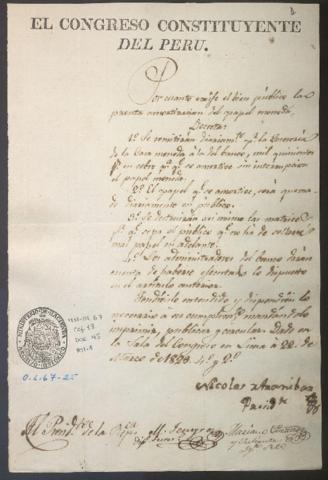 EL CONGRESO CONSTITUYENTE
DEL PERU.
Por cuanto exije el bien público la
pronta amortizacion del papel moneda,
Decreta:
1º. Se remitirán diariamte. pr. la Tesorería
de la Casa moneda á la del banco, mil quinientos
ps. en cobre pa. qe. se amortice sin interrupcion
el papel moneda.
2º. El papel qe. se amortice, será quema-
do diariamente en público.
3º. Se destruirán asi mismo las matrices
pa. qe. sepa el público qe. no ha de sellarse
mas papel en adelante.
4º. Los administradores del banco darán
cuenta de haberse ejecutado lo dispuesto
en el artículo anterior.
Tendreislo entendido, y dispondréis lo
necesario a su cumplimto. mandándolo
imprimir, publicar y circular. Dado en
la Sala del Congreso en Lima á 22 de
Marzo de 1823. 4º. y 2º.
Nicolas Aranibar
Presidte.
Al Presidte. de la Repca.
MINISTERIO DE HACIENDA
O.L. 67-25